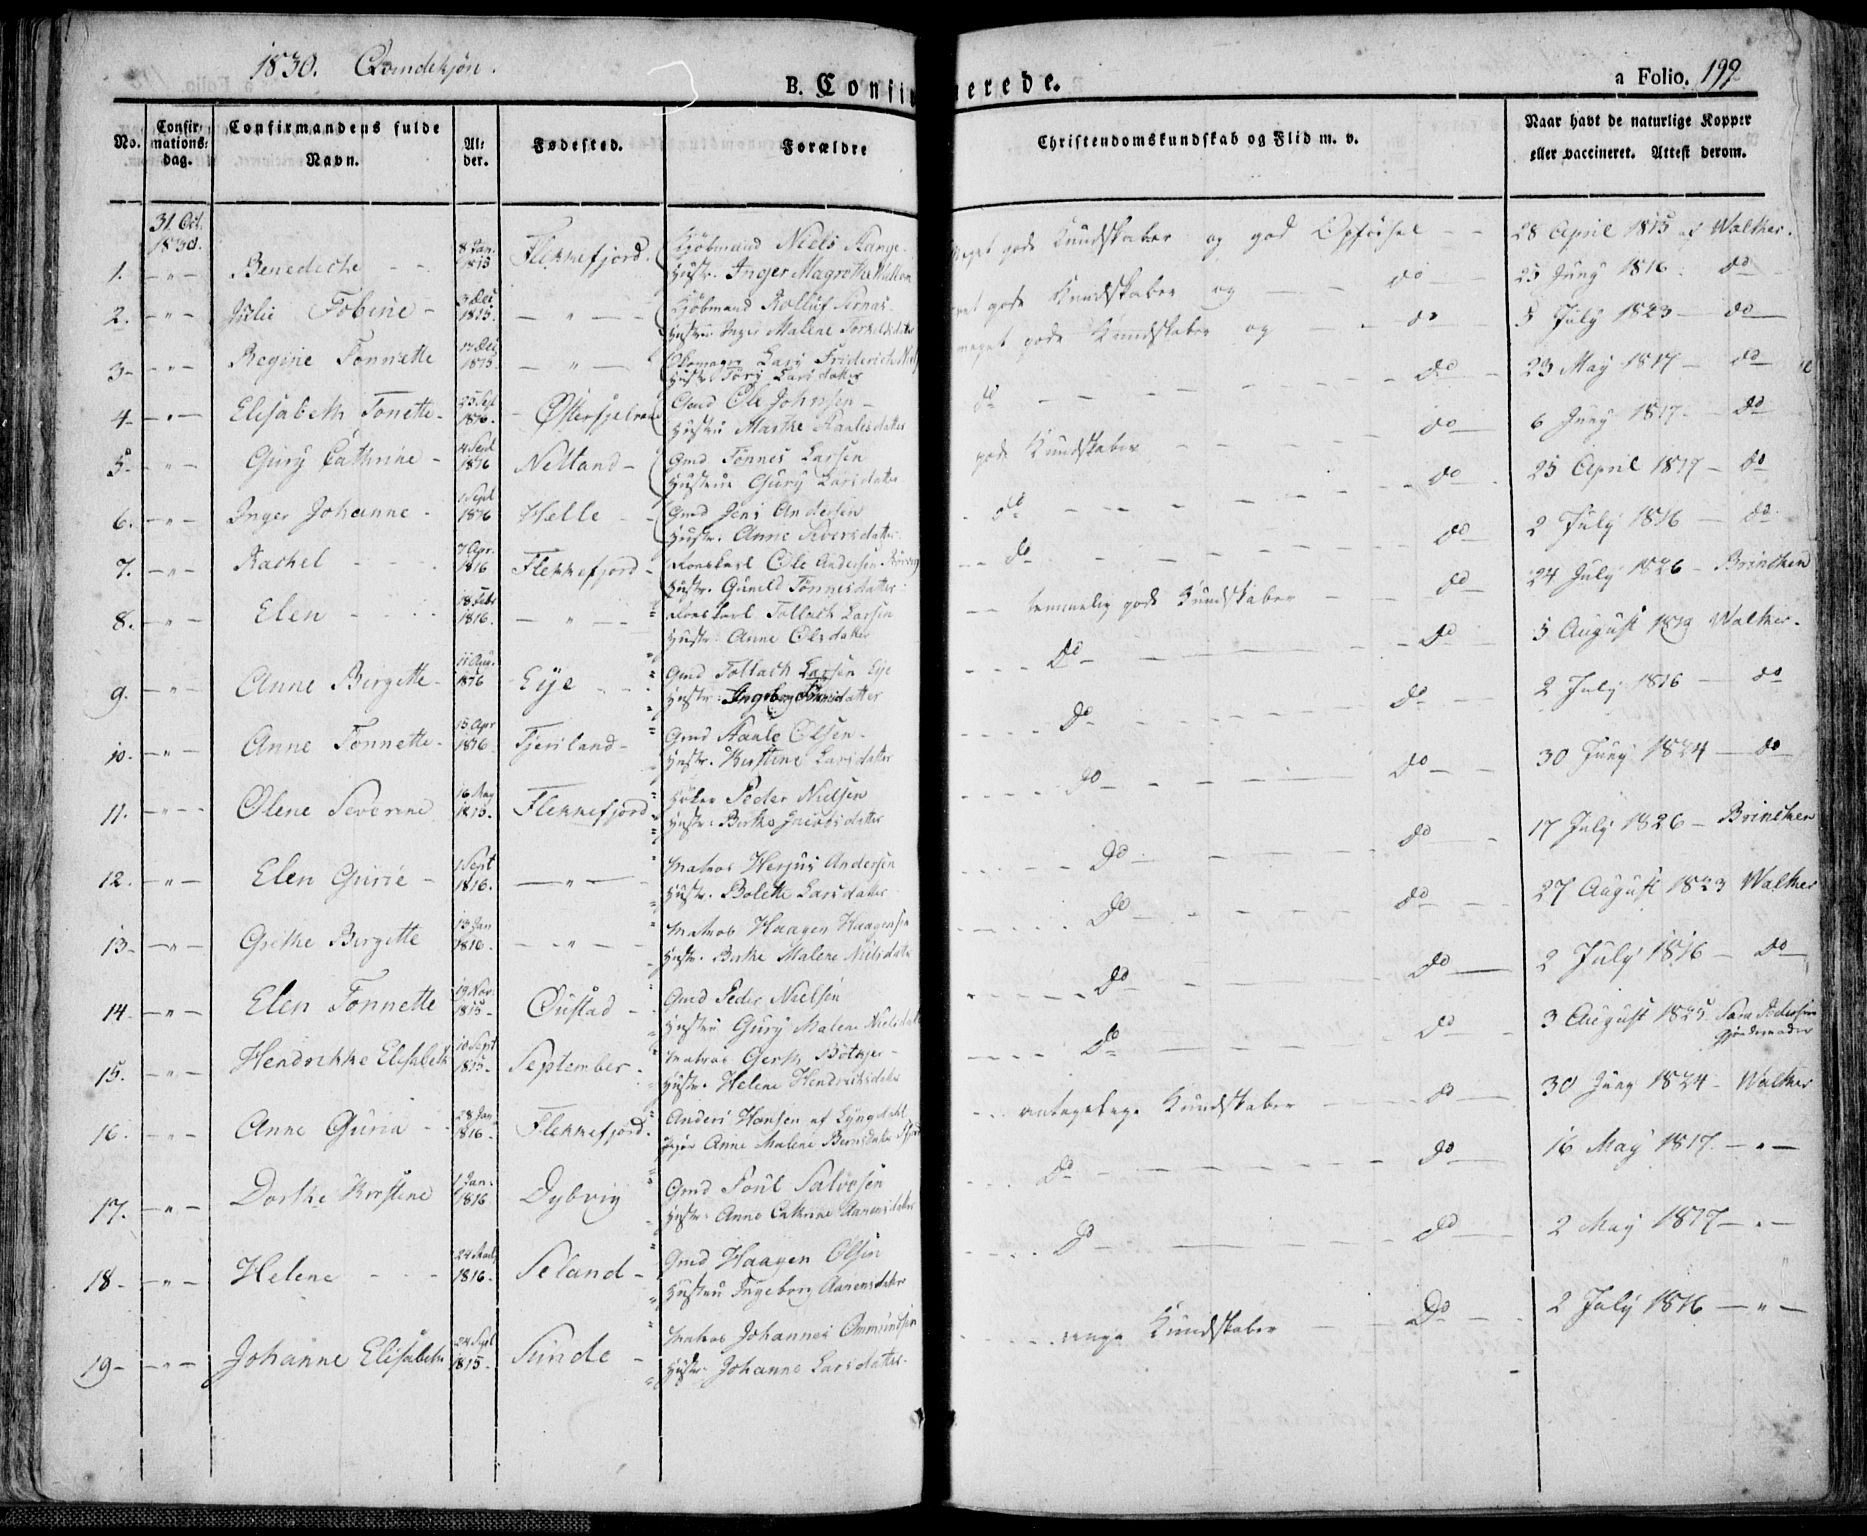 1830. Qvindekjøn.
B. Confirmerede.
a Folio. 199
No.
Confir-
mations-
dag.
Confirmandens fulde
Navn.
Al-
der.
Fødested.
Forældre
Christendomskundskab og Flid m. v.
Naar havt de naturlige Kopper
eller vaccineret. Attest derom.
31. Oct.
1830.
1. — " — Benedicte - - 8 Jan. 1815 Flekkefjord. Kjøbmand Niels Stange
Hustr. Inger Magrethe
Meget gode Kundskaber og god Opførsel - - 28 April 1815 af Walther.
2. — " — Julie Tobine - 3 Dec 1815. — " — Kjøbmand
Hustru Inger Malene Torkeldsdatter
gode Kundskaber og — do — 25 Juny 1816. do
3 - — " — Regine Tonnette 1815. — " — Skomager Lars Friderich
Hustr. Lars datter
meget gode Kundskaber og - do — 5 July 1823 — do —
4 - — " — Elisabeth Tonette - 25 Sept 1816. Gmd Ole Johnsen —
Hustru Marthe datter
do — — — do — 23 May 1817 — do
5 - — " — Gury Cathrine - 4 Sept 1816 Netland - Gmd Tønnes Larsen
Hustrue Gury Larsdatter
gode Kundskaber — — do — 6 Juny 1817 - do
6. — " — Inger Johanne - 1 Sept 1816 Helle - - Gmd Jens Andersen
Hustr. Anne Siversdatter
- do — — — do - 25 April 1817 - do
7. — " — Rachel - - - 7 Apr. 1816 Flekkefjord - Ole Andersen
Hustr. Gunild Tønnesdatter
- - do — — — do - 2 July 1816 — do
8. — " — Elen - - - 18 Febr 1816. — " — Tollach Larsen
Hustr: Anne Olsdatter
- - temmelig gode Kundskaber - - do - 24 July 1826 - Brincken
9. — " — Anne Birgitte - 11 Aug. 1816 Eije - - Gmd Tollach Larsen Eje
Hustr: Ingeborg datter
- - - do — — do - 5 August 1819 Walther.
10. — " — Anne Tonnette - 15 Apr 1816 Tjersland - Gmd Staale Olsen -
Hustr. Kirstine Larsdatter
- - - do — — do - 2 July 1816 — do
11. — " — Olene Severine 16 May 1815. Flekkefjord Høker Peder Nielsen
Hustr: Berthe Jacobsdatter
- - - do — — do - 30 Juny 1824 — do
12. — " — Elen Gurie - 1 Sept 1816. — " — Matros Herjus Andersen
Hustr. Bolette Larsdatter
- - - do — — do - 17 July 1826 - Brincken
13 - — " — Grethe Birgitte 13 Jan 1816. — " — Matros Haagen Haagensen
Hustr. Berthe Malene Nielsdatter
- - - do — — do - 27 August 1823 Walther
14. — " — Elen Tonnette 19 Nov. 1815 - Øustad - Gmd Peder Nielsen
Hustru Gury Malene
- - - do — — do — 2 July 1816 — do —
15. — " — Hendrikke Elisabeth 10 Sept 1815 - September - Matros Gerth Böthjer -
Hustr. Helene Hendriksdatter
- - - do — — do - 3 August 1825 Sara Pedersen
Gjordemoder
16. — " — Anne Guria - - 28 Jan 1816. Flekkefjord. Anders Hansen af Lyngdahl
Pige Anne Malene
- - antagelige Kundskaber - - do — 30 Juny 1824 - Walther
17. — " — Dorthe Kirstine 1 Jan. 1816 Dybvig Gmd Poul Salvesen
Hustr: Anne Cathrine Aanensdatter
- - - do — — do — 16 May 1817 — " —
18 - — " — Helene - - - 24 1816. Seland - Gmd Haagen Olsen
Hustru Ingeborg Aanensdatter
- - - do — — do — 2 May 1817 — " —
19 - — " — Johanne Elisabeth 24 Sept 1815. Sunde - Matros Johannes Ommundsen
Hustr. Johanne Larsdatter -
- - - ringe Kundskaber - - Do — 2 July 1816 — " —